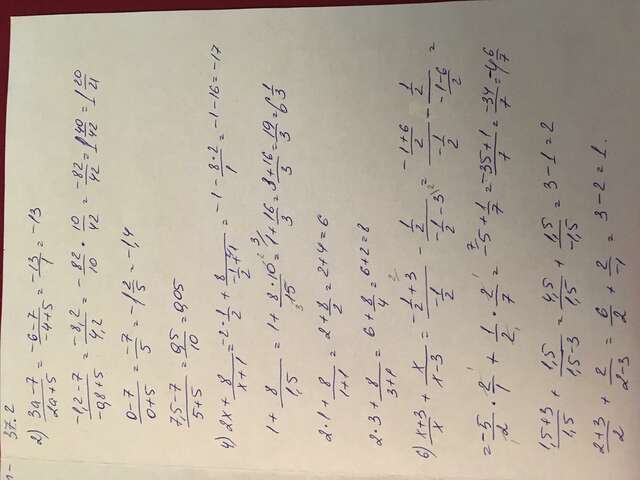 37.2
2) (3a-7)/(2a+5) = (-6-7)/(-4+5) = -13/1 = -13
(-1,2-7)/(-0,8+5) = (-8,2)/(4,2) = -82/10 · 10/42 = -82/42 = 1 40/42 = 1 20/21
(0-7)/(0+5) = -7/5 = -1 2/5 = -1,4
(7,5-7)/(5+5) = 0,5/10 = 0,05
4) 2x + 8/(x+1) = -2·1/2 + 8/(-1/2+1) = -1 - 8·2/1 = -1-16 = -17
1 + 8/1,5 = 1 + 8·10/15 = 1 + 16/3 = (3+16)/3 = 19/3 = 6 1/3
2·1 + 8/(1+1) = 2 + 8/2 = 2+4 = 6
2·3 + 8/(3+1) = 6 + 8/4 = 6+2 = 8
6) (x+3)/x + x/(x-3) = (-1/2+3)/(-1/2) - (1/2)/(-1/2-3) = - ((-1+6)/2)/(-1/2) - (1/2)/((-1-6)/2) =
= -5/2 · 2/1 + 1/2 · 2/7 = -5 + 1/7 = (-35+1)/7 = -34/7 = -4 6/7
(1,5+3)/1,5 + 1,5/(1,5-3) = 4,5/1,5 + 1,5/-1,5 = 3-1 = 2
(2+3)/2 + 2/(2-3) = 6/2 + 2/-1 = 3-2 = 1.